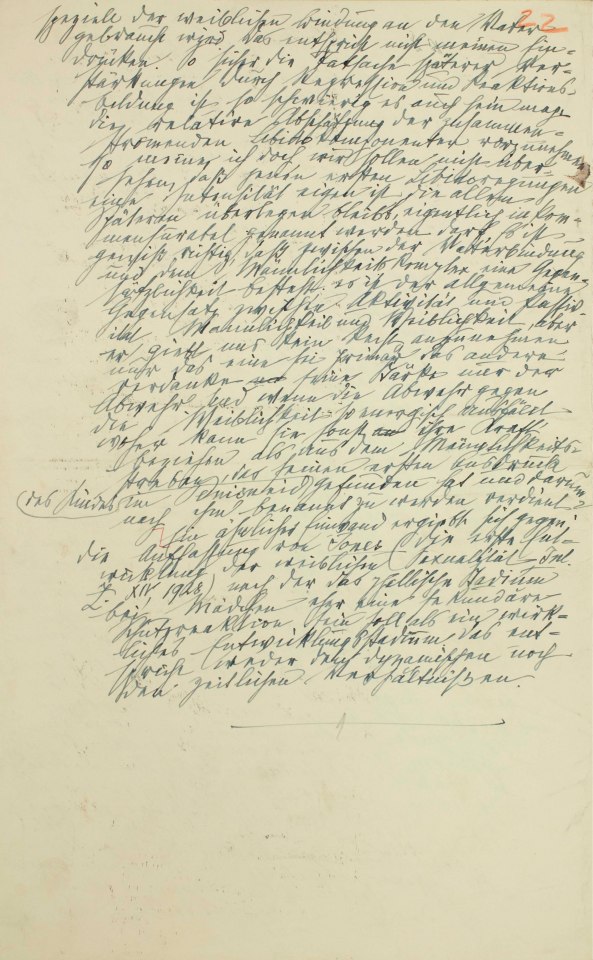 speziell der weiblichen Bindung an den Vater 22
gebraucht wird. Das entspricht nicht meinen Ein=
drücken. So sicher die Tatsache späterer Ver=
stärkungen durch Regression und Reaktions=
bildung ist, so schwierig es auch sein mag
die relative Abschätzung der zusammen=
strömenden Libidokomponenten vorzunehmen
so meine ich doch, wir sollen nicht über
sehen, daß jenen ersten Libidoregungen
eine Intensität eigen ist die allen
späteren überlegen bleibt, eigentlich inkom=
mensurabel genannt werden darf. Es ist
gewiß richtig, daß zwischen der Vaterbindung
und dem Männlichkeitskomplex eine Gegen=
sätzlichkeit besteht, es ist der allgemeine
Gegensatz zwischen Aktivität und Passiv=
ität Männlichkeit und Weiblichkeit, aber
er giebt uns kein Recht anzunehmen
nur das eine sei primär, das andere
verdanke seine Stärke nur der
Abwehr. Und wenn die Abwehr gegen
die Weiblichkeit so energisch ausfällt
woher kann sie sonst ihre Kraft
beziehen als aus dem Männlichkeits=
streben, das seinen ersten Ausdruck
des Kindes im Penisneid gefunden hat und darum
nach ihm benannt zu werden verdient
Ein ähnlicher Einwand ergiebt sich gegen
die Auffassung von Jones (Die erste Ent=
wicklung der weiblichen Sexualität Int.
Z. XIV 1928) nach der das phallische Stadium
bei Mädchen eher eine sekundäre
Schutzreaktion sein soll als ein wirk=
liches Entwicklungsstadium. Das ent=
spricht weder den dynamischen noch
den zeitlichen Verhältnissen.